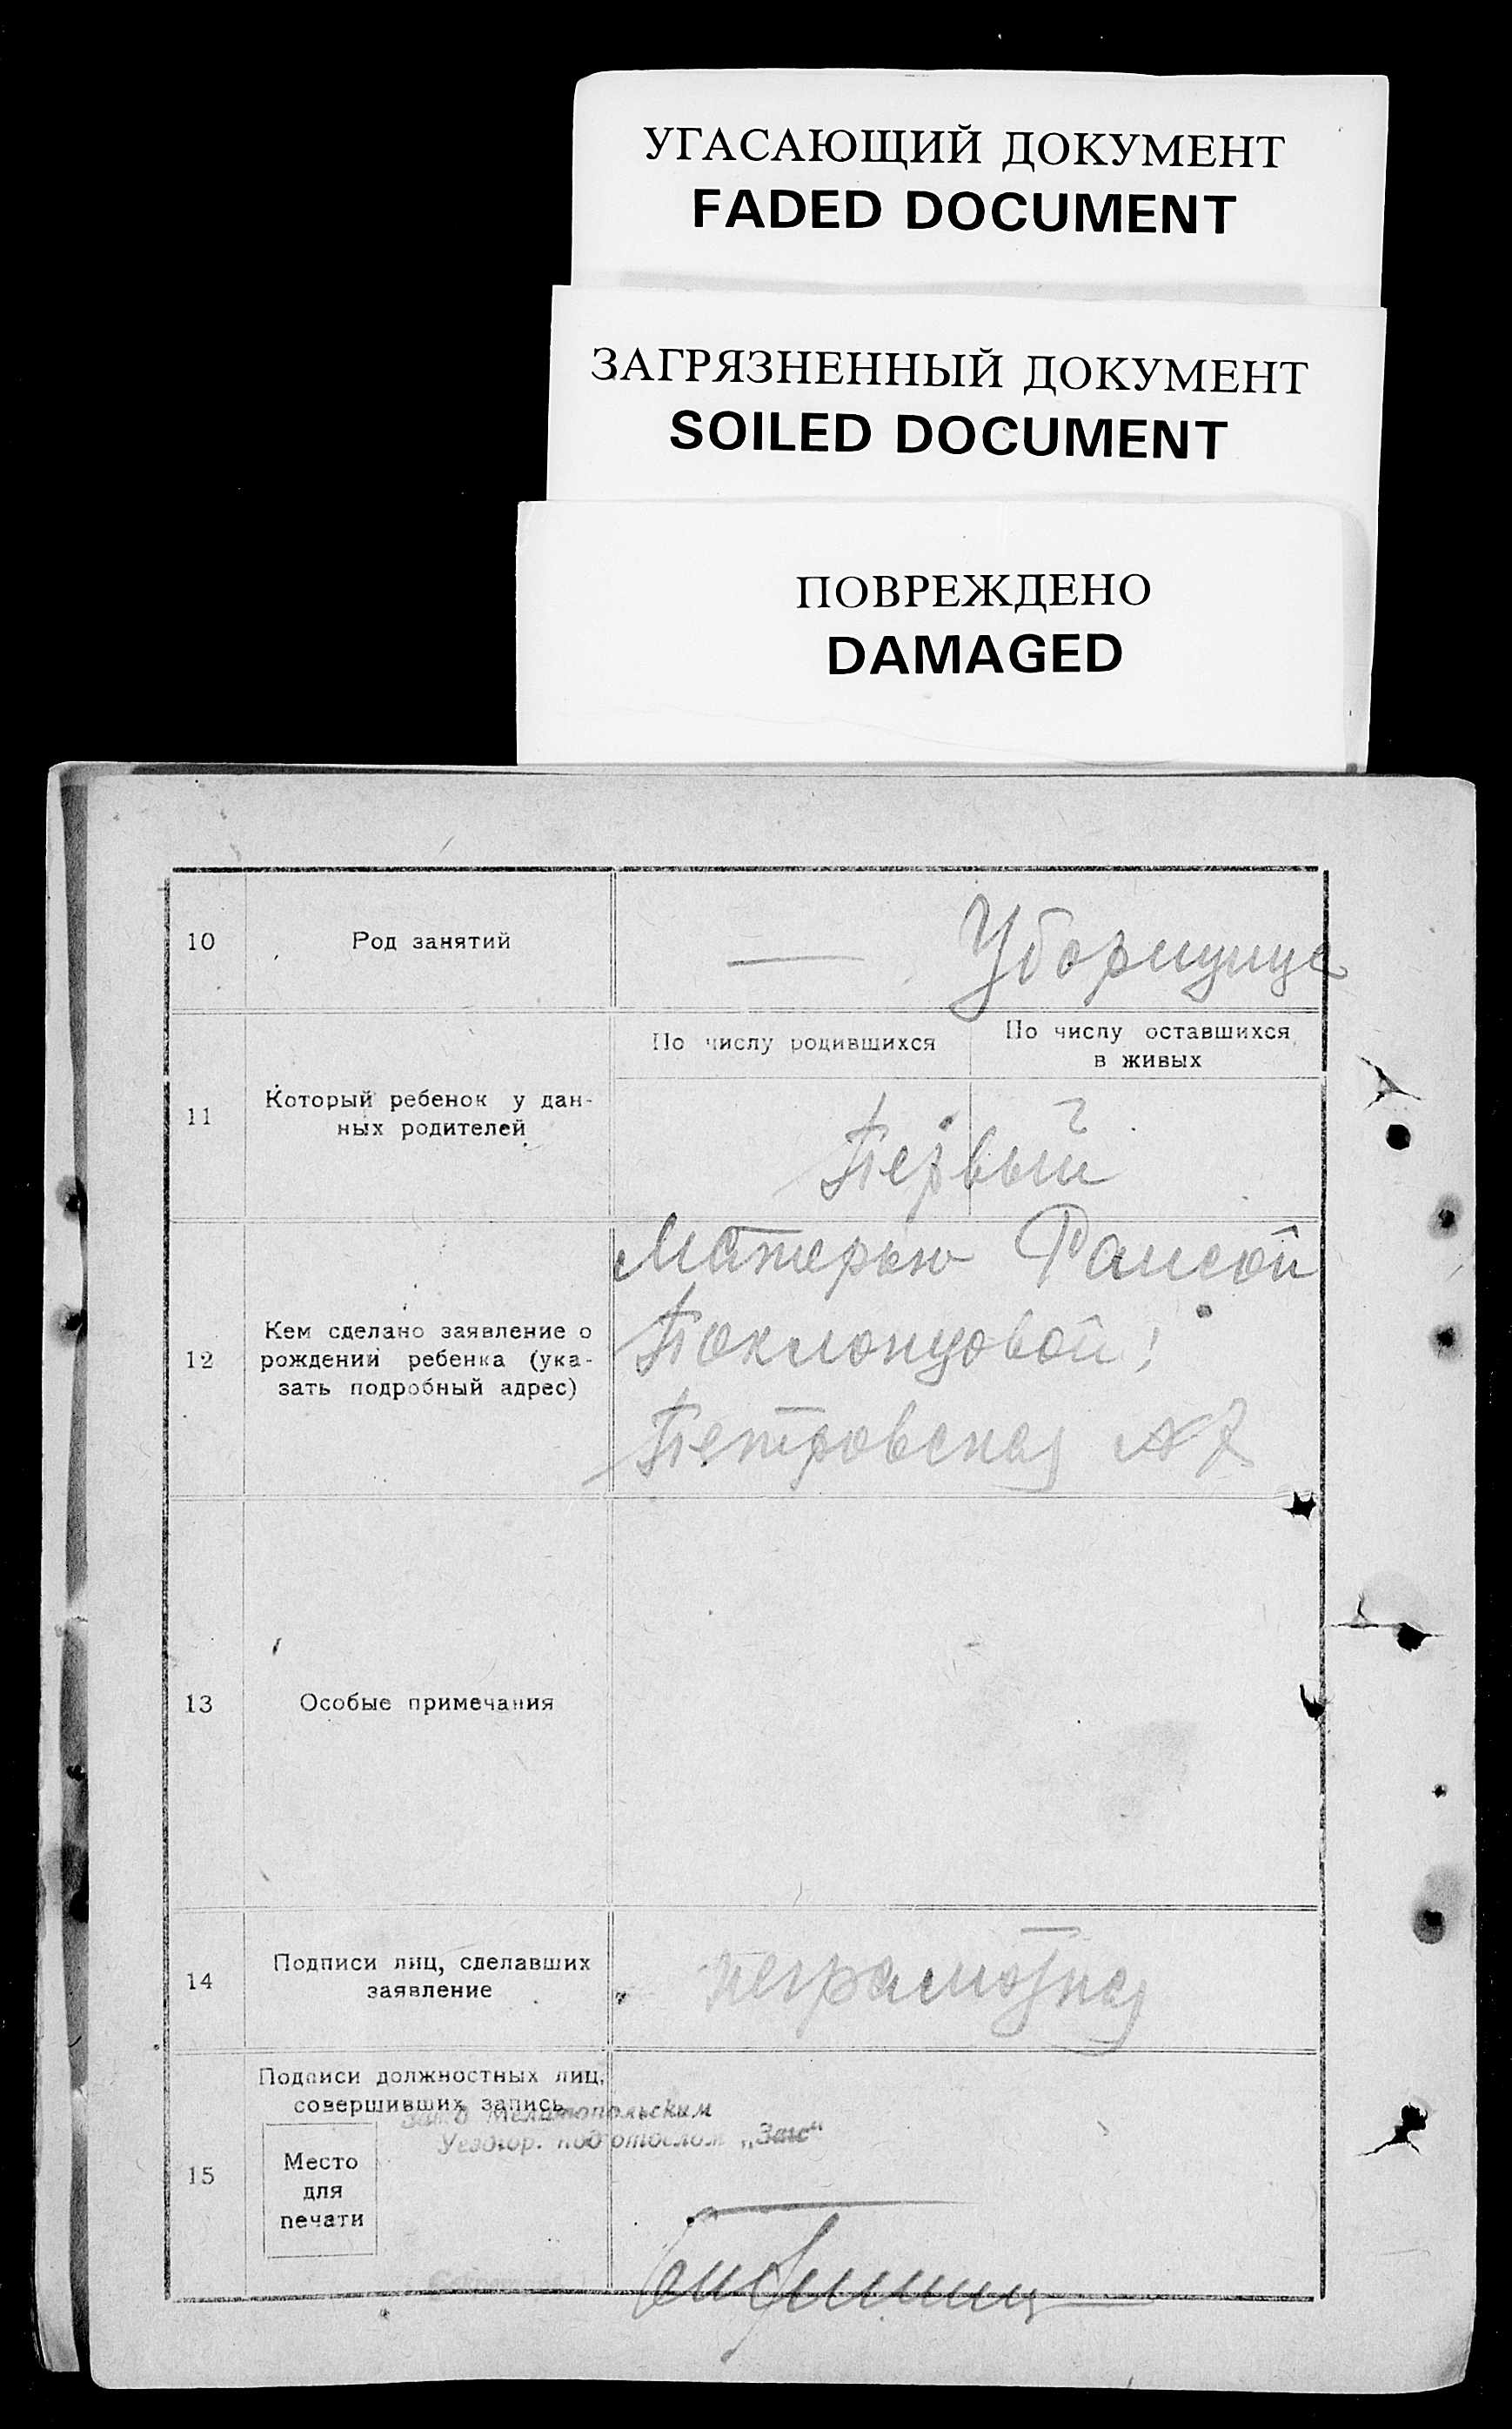 УГАСАЮЩИЙ ДОКУМЕНТ
FADED DOCUMENT
ЗАГРЯЗНЕННЫЙ ДОКУМЕНТ
SOILED DOCUMENT
ПОВРЕЖДЕНО
DAMAGED
10
Род занятий
—
Уборщица
11
Который ребенок у дан-
ных родителей
По числу родившихся
По числу оставшихся
в живых
Первый
12
Кем сделано заявление о
рождении ребенка (ука-
зать подробный адрес)
Матерью Раисой
Поклонцовой
Петровская № 7
13
Особые примечания
14
Подписи лиц, сделавших
заявление
неграмотная
15
Подписи должностных лиц,
совершивших запись
Мелитопольским
подотделом „Загс“
Место
для
печати